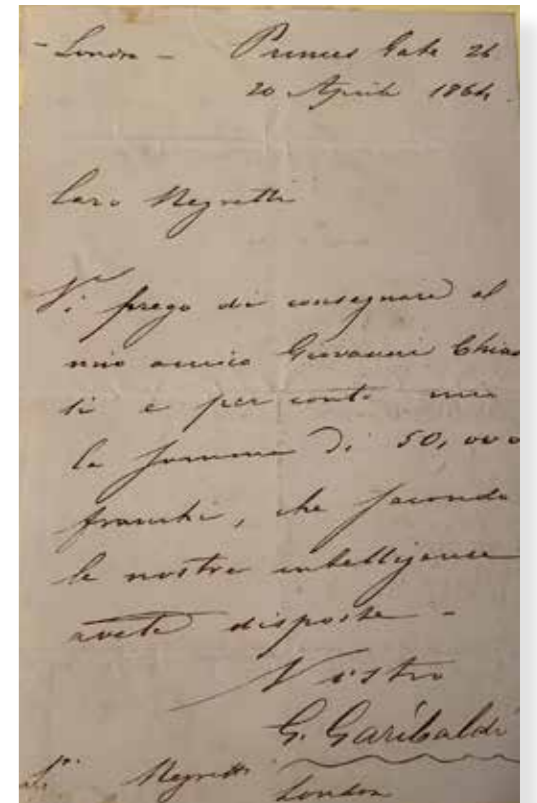 - Londra - Princes Gate 26
20 Aprile 1864.
Caro Negretti
Vi prego di consegnare al
mio amico Giovanni Chias
si e per conto mio
la somma di 50,000
franchi, che secondo
le nostre intelligenze
avete disposte -
Vostro
G. Garibaldi
Negretti
London